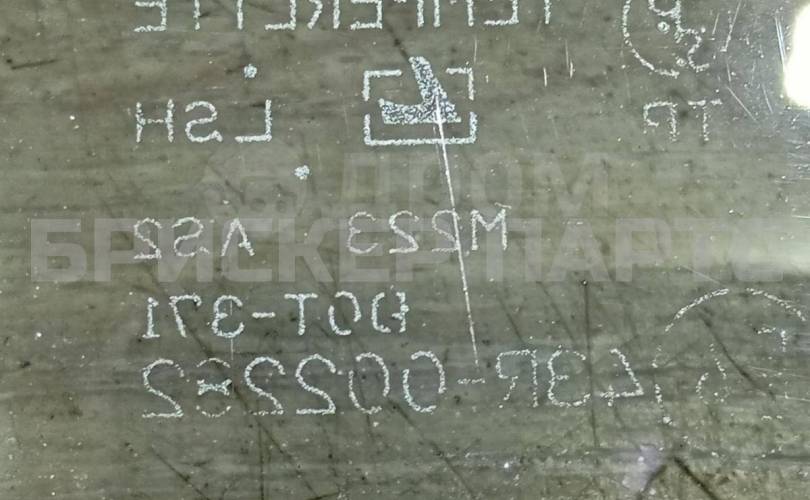 TEMPERLITE
TP
LSH
M223 AS2
DOT-371
43R-002262
ДРОМ
БРИСКЕР ПАРТС